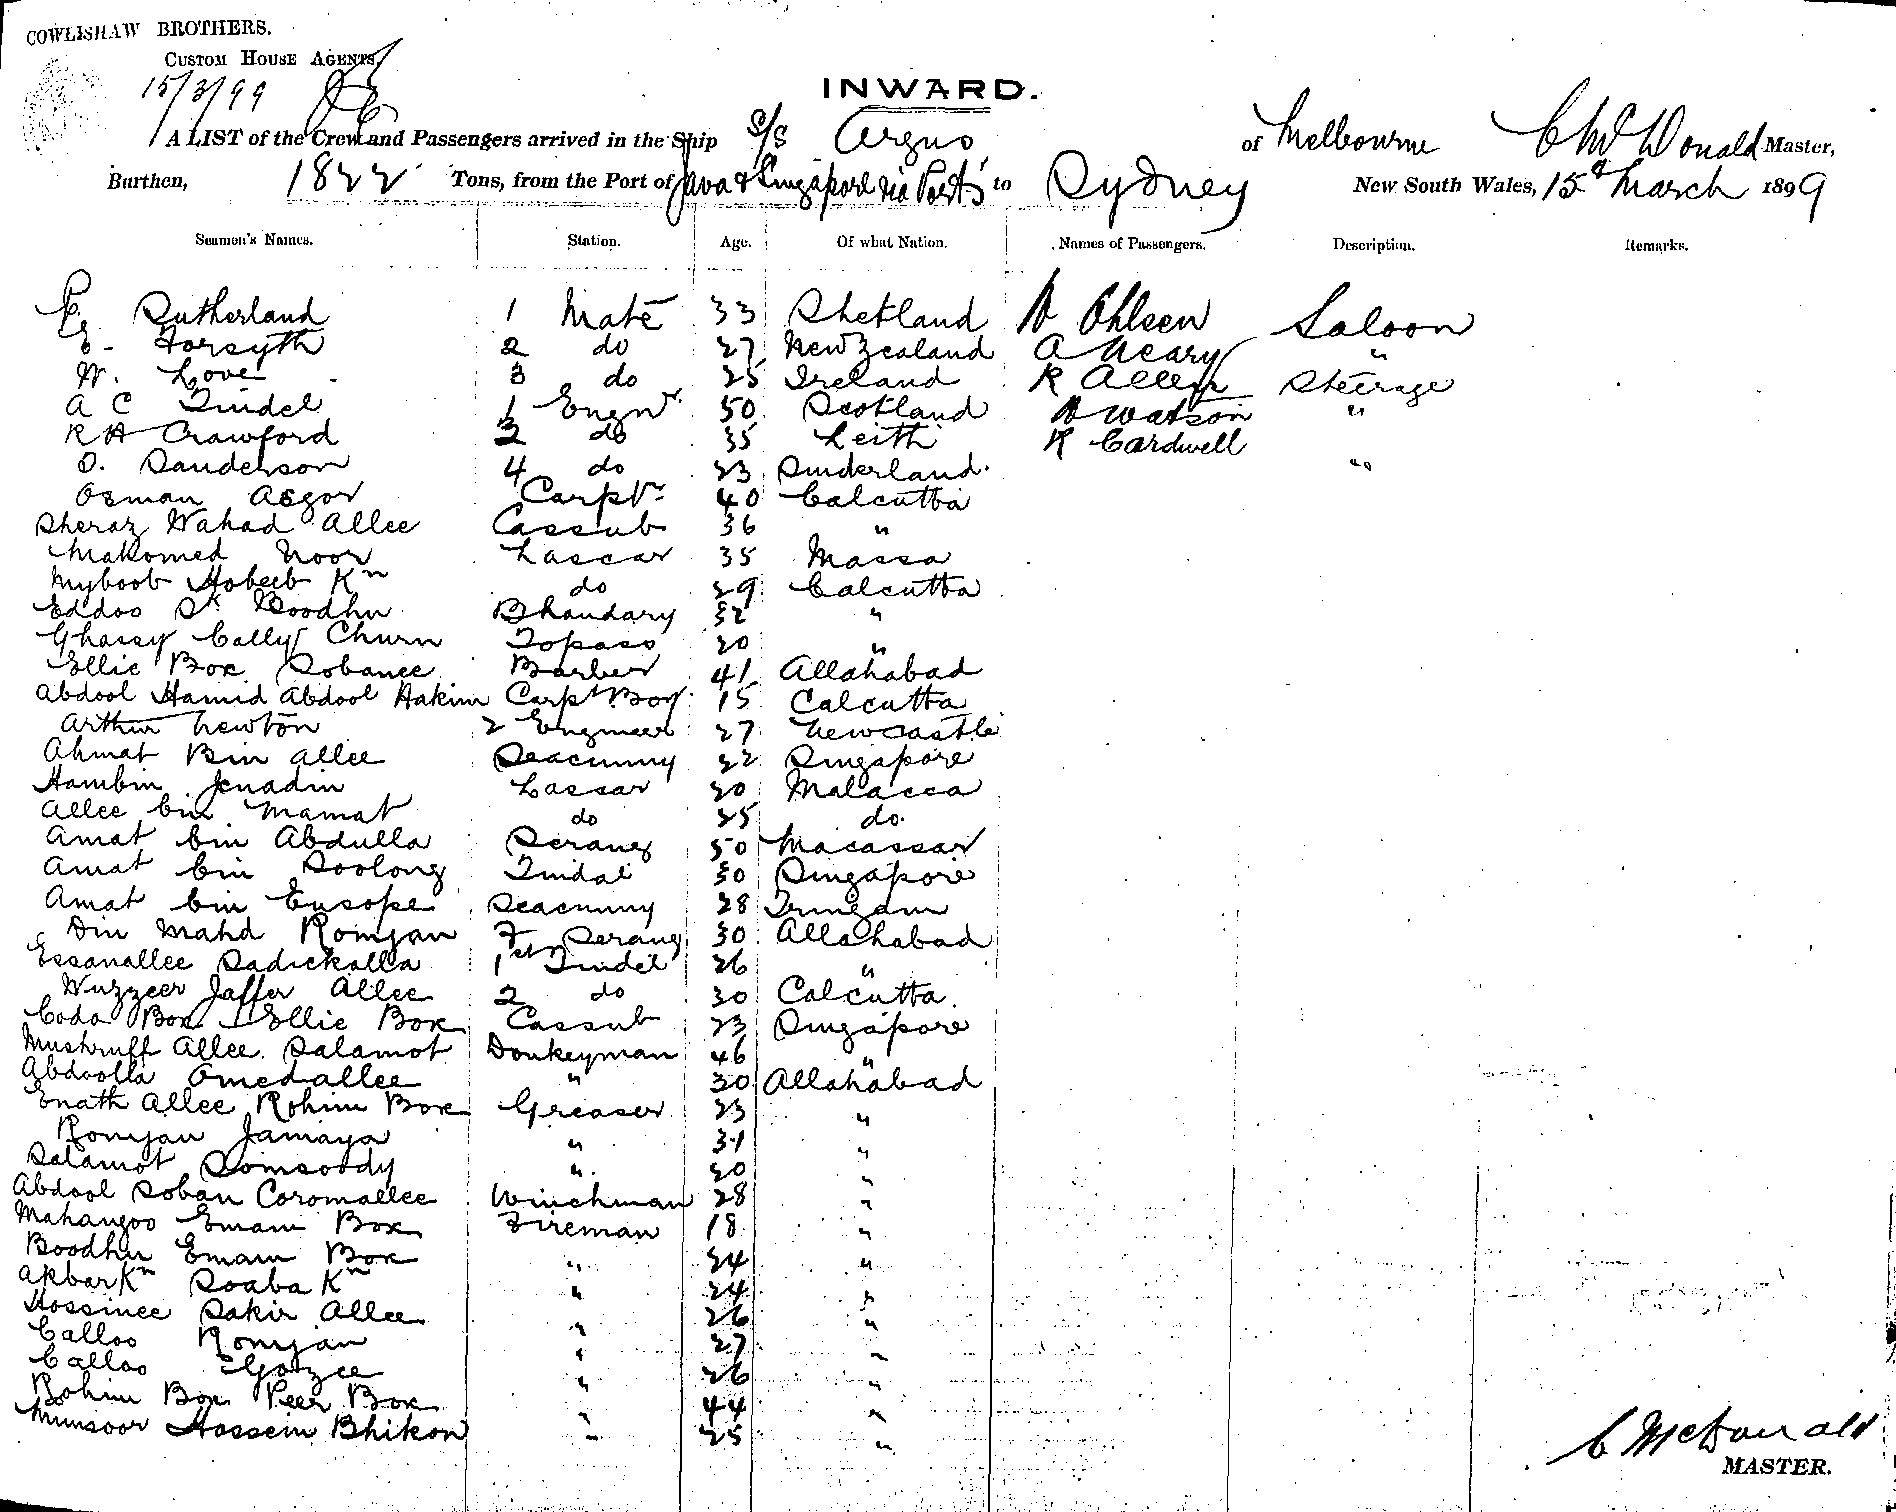 COWLISHAW BROTHERS.
CUSTOM HOUSE AGENTS
15/3/99
INWARD.
A LIST of the Crew and Passengers arrived in the Ship S/S Argus of Melbourne C McDonald Master,
Burthen, 1822 Tons, from the Port of Java & Singapore via Ports to Sydney New South Wales, 15th March 1899
Seamen's Names. Station. Age. Of what Nation. Names of Passengers. Description. Remarks.
Sutherland 1 Mate 33 Shetland Ohlsen Saloon
Forsyth 2 do 27 New Zealand A Neary "
W. Love 3 do 25 Ireland R Allen Steerage
A C Tindel 1 Engnr 50 Scotland Watson "
R H Crawford 3 do 35 Leith R Cardwell
D. Sanderson 4 do 23 Sunderland. "
Osman Asgor Carptr 40 Calcutta
Sheraz Wahad Allee Cassub 36 "
Mahomed Noor Lascar 35 Massa
Myboob Hobeeb Kn do 29 Calcutta
Eddoo Sk Boodhu Bhandary 32 "
Ghassy Cally Churn Topass 20 "
Ellie Box Sobanee Barber 41 Allahabad
Abdool Hamid Abdool Hakim Carpt Boy 15 Calcutta
Arthur Newton 2 Engineer 27 Newcastle
Ahmat Bin Allee Seacunny 22 Singapore
Hambin Jenadin Lascar 20 Malacca
Allee bin Mamat do 25 do.
Amat bin Abdulla Serang 50 Macassar
Amat bin Soolong Tindal 30 Singapore
Amat bin Eusope Seacunny 28 Tringam
Din Mahd Romjan F Serang 30 Allahabad
Essanallee Sadickalla 1st Tindel 26 "
Wuzzeer Jaffer Allee 2 do 30 Calcutta.
Coda Box Ellie Box Cassub 23 Singapore
Mushruff Allee Salamot Donkeyman 46 "
Abdoolla Omedallee " 30 Allahabad
Enath Allee Rohim Box Greaser 23 "
Romjan Jamaya " 31 "
Salamot Somsoody " 20 "
Abdool Soban Coromallee Winchman 28 "
Mahangoo Emam Box Fireman 18 "
Boodhu Emam Box " 24 "
Akbar Kn Soaba Kn " 24 "
Hossinee Sakir Allee " 26 "
Calloo Romjan " 27 "
Calloo Gozee " 26 "
Bohim Box Peer Box " 44 "
Munsoor Hossein Bhikon " 25 "
C McDonald
MASTER.